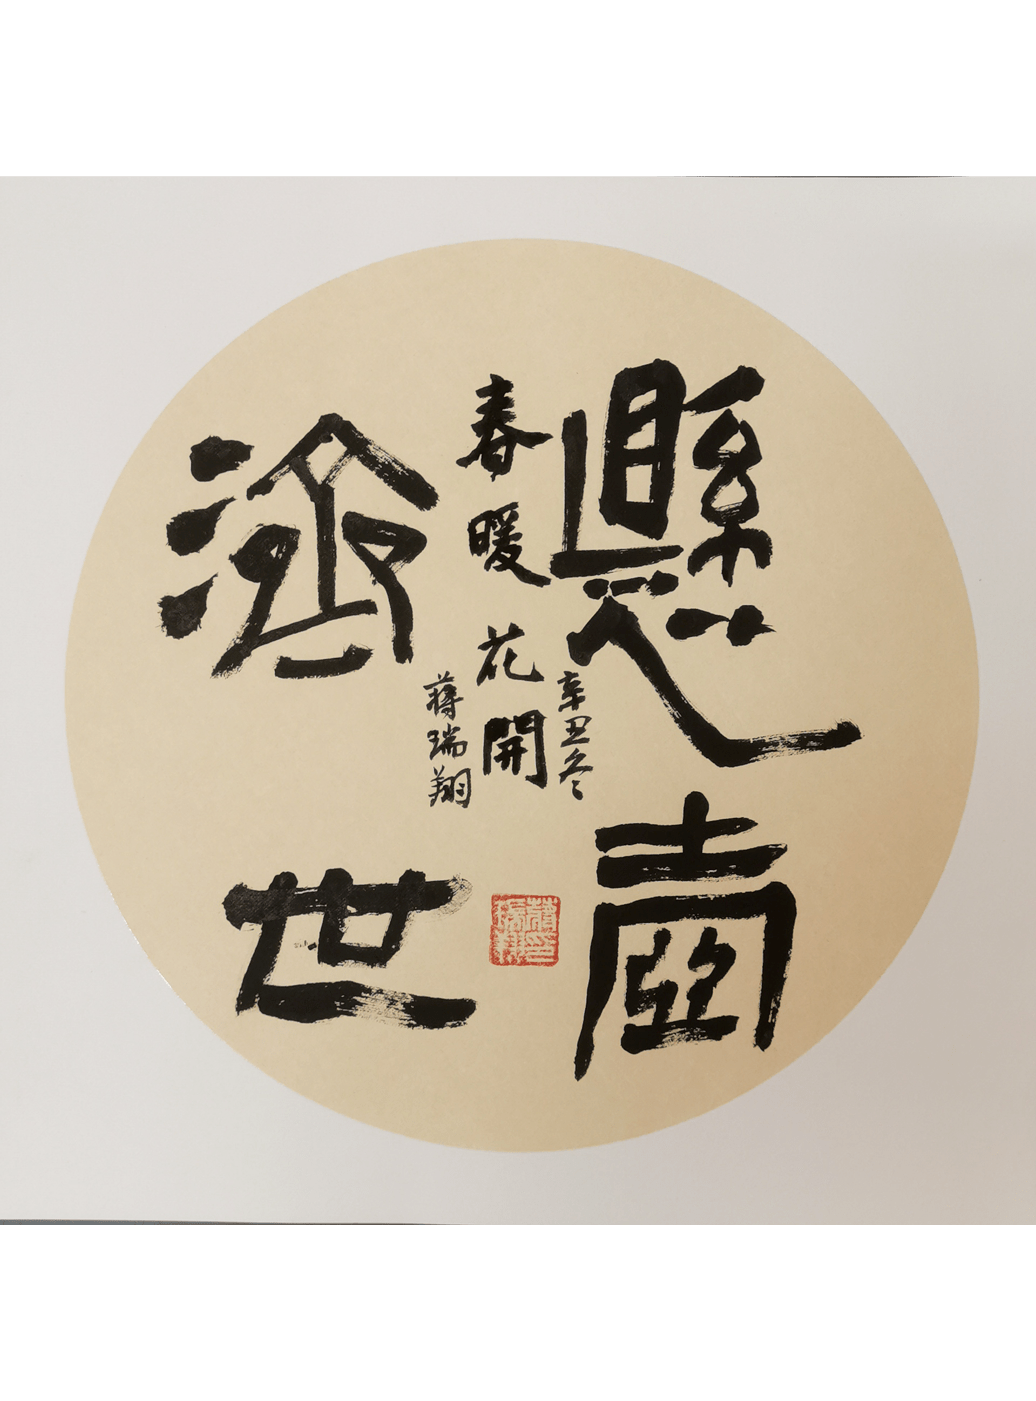 懸壺
濟世
春暖花開
辛丑冬
蔣瑞翔